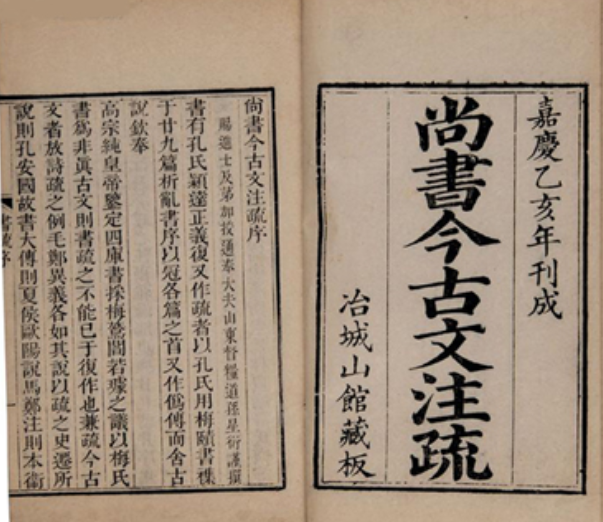 嘉慶乙亥年刊成
尚書今古文注疏
冶城山館藏板
尚書今古文注疏序
賜進士及第加授通奉大夫山東督糧道孫星衍謹撰
書有孔氏穎達正義復又作疏者以孔氏用梅賾書襍
于廿九篇析亂書序以冠各篇之首又作僞傳而舍古
說欽奉
高宗純皇帝鑒定四庫書採梅鷟閻若璩之議以梅氏
書爲非眞古文則書疏之不能已于復作也兼疏今古
文者放詩疏之例毛鄭異義各如其說以疏之史遷所
說則孔安國故書大傳則夏侯歐陽說馬鄭注則本衞
書疏序